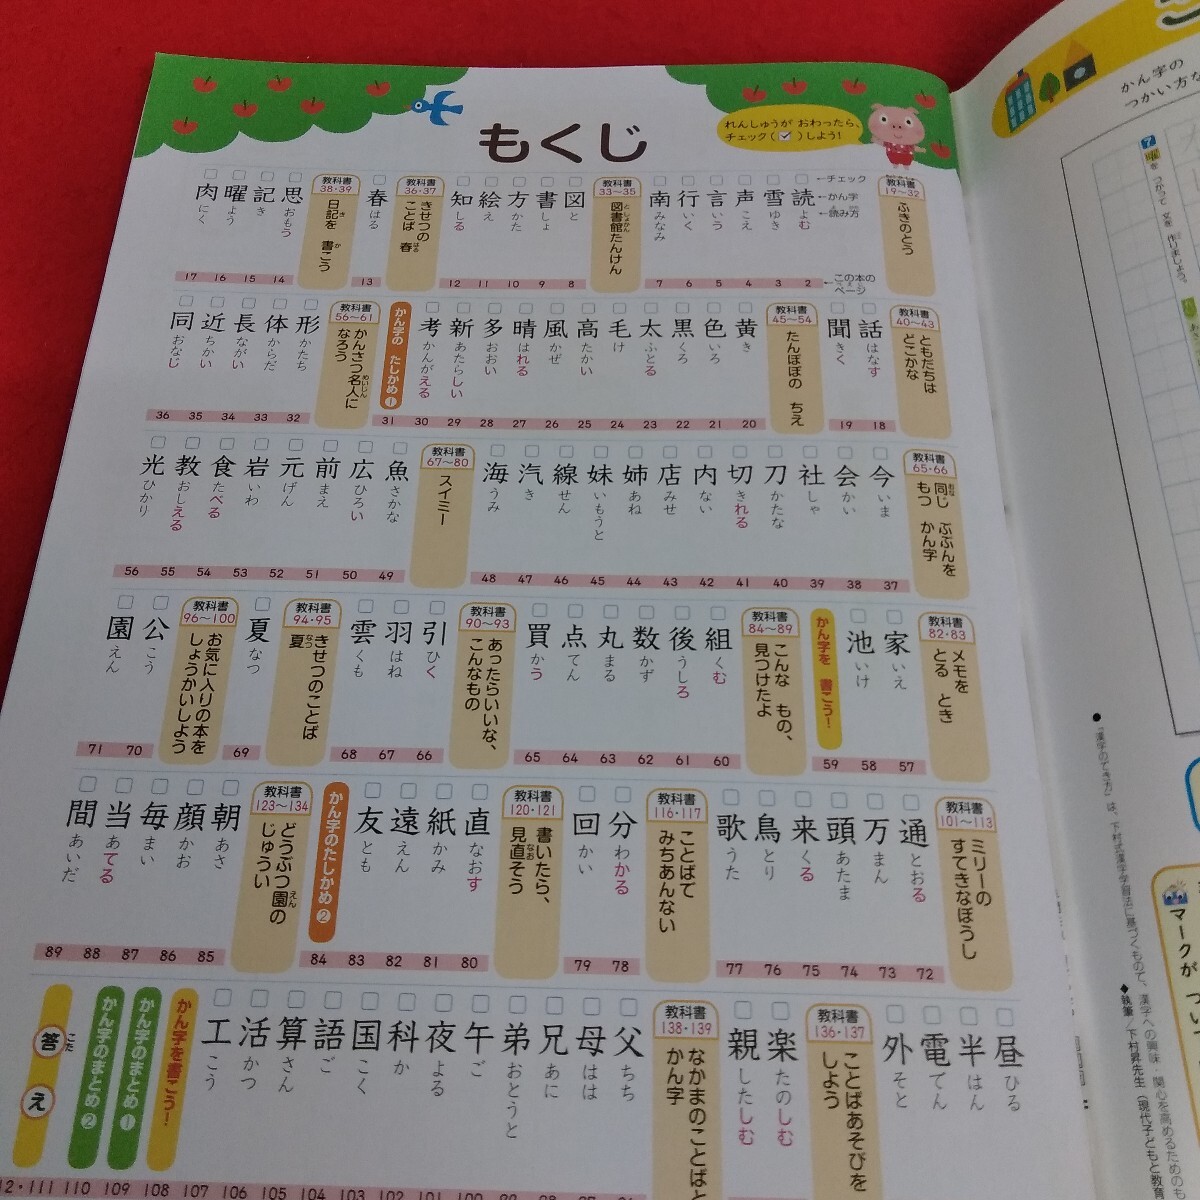 もくじ
れんしゅうが おわったら、
チェック( )しよう!
←チェック
←かん字
←読み方
←この本の
ページ
教科書 19~32 ふきのとう
読 よむ 2
雪 ゆき 3
声 こえ 4
言 いう 5
行 いく 6
南 みなみ 7
教科書 33~35 図書館たんけん としょかん
図 と 8
書 しょ 9
方 かた 10
絵 え 11
知 しる 12
教科書 36・37 きせつの ことば 春 はる
春 はる 13
教科書 38・39 日記を 書こう き か
思 おもう 14
記 き 15
曜 よう 16
肉 にく 17
教科書 40~43 ともだちは どこかな
話 はなす 18
聞 きく 19
教科書 45~54 たんぽぽの ちえ
黄 き 20
色 いろ 21
黒 くろ 22
太 ふとる 23
毛 け 24
高 たかい 25
風 かぜ 26
晴 はれる 27
多 おおい 28
新 あたらしい 29
考 かんがえる 30
かん字の たしかめ❶ 31
教科書 56~61 かんさつ名人に なろう めいじん
形 かたち 32
体 からだ 33
長 ながい 34
近 ちかい 35
同 おなじ 36
教科書 65・66 同じ ぶぶんを もつ かん字 おな
今 いま 37
会 かい 38
社 しゃ 39
刀 かたな 40
切 きれる 41
内 ない 42
店 みせ 43
姉 あね 44
妹 いもうと 45
線 せん 46
汽 き 47
海 うみ 48
教科書 67~80 スイミー
魚 さかな 49
広 ひろい 50
前 まえ 51
元 げん 52
岩 いわ 53
食 たべる 54
教 おしえる 55
光 ひかり 56
教科書 82・83 メモを とる とき
家 いえ 57
池 いけ 58
かん字を 書こう! 59
教科書 84~89 こんな もの、 見つけたよ
組 くむ 60
後 うしろ 61
数 かず 62
丸 まる 63
点 てん 64
買 かう 65
教科書 90~93 あったらいいな、 こんなもの
引 ひく 66
羽 はね 67
雲 くも 68
教科書 94・95 きせつのことば 夏 なつ
夏 なつ 69
教科書 96~100 お気に入りの本を しょうかいしよう
公 こう 70
園 えん 71
教科書 101~113 ミリーの すてきなぼうし
通 とおる 72
万 まん 73
頭 あたま 74
来 くる 75
鳥 とり 76
歌 うた 77
教科書 116・117 ことばで みちあんない
分 わかる 78
回 かい 79
教科書 120・121 書いたら、 見直そう なお
直 なおす 80
紙 かみ 81
遠 えん 82
友 とも 83
かん字のたしかめ❷ 84
教科書 123~134 どうぶつ園の じゅうい えん
朝 あさ 85
顔 かお 86
毎 まい 87
当 あてる 88
間 あいだ 89
昼 ひる
半 はん
電 でん
外 そと
教科書 136・137 ことばあそびを しよう
楽 たのしむ
親 したしむ
教科書 138・139 なかまのことばと かん字
父 ちち
母 はは
兄 あに
弟 おとうと
午 ご 100
夜 よる 101
科 か 102
国 こく 103
語 ご 104
算 さん 105
活 かつ 106
工 こう 107
かん字を書こう! 108
かん字のまとめ❶ 109
かん字のまとめ❷ 110
答え こた 12・111
かん字の
つかい方な
7 曜を つかって 文を 作りましょう。
●「漢字のでき方」は、下村式漢字学習法に基づくもので、漢字への興味・関心を高めるための
◆執筆/下村昇先生(現代子どもと教育
マークが